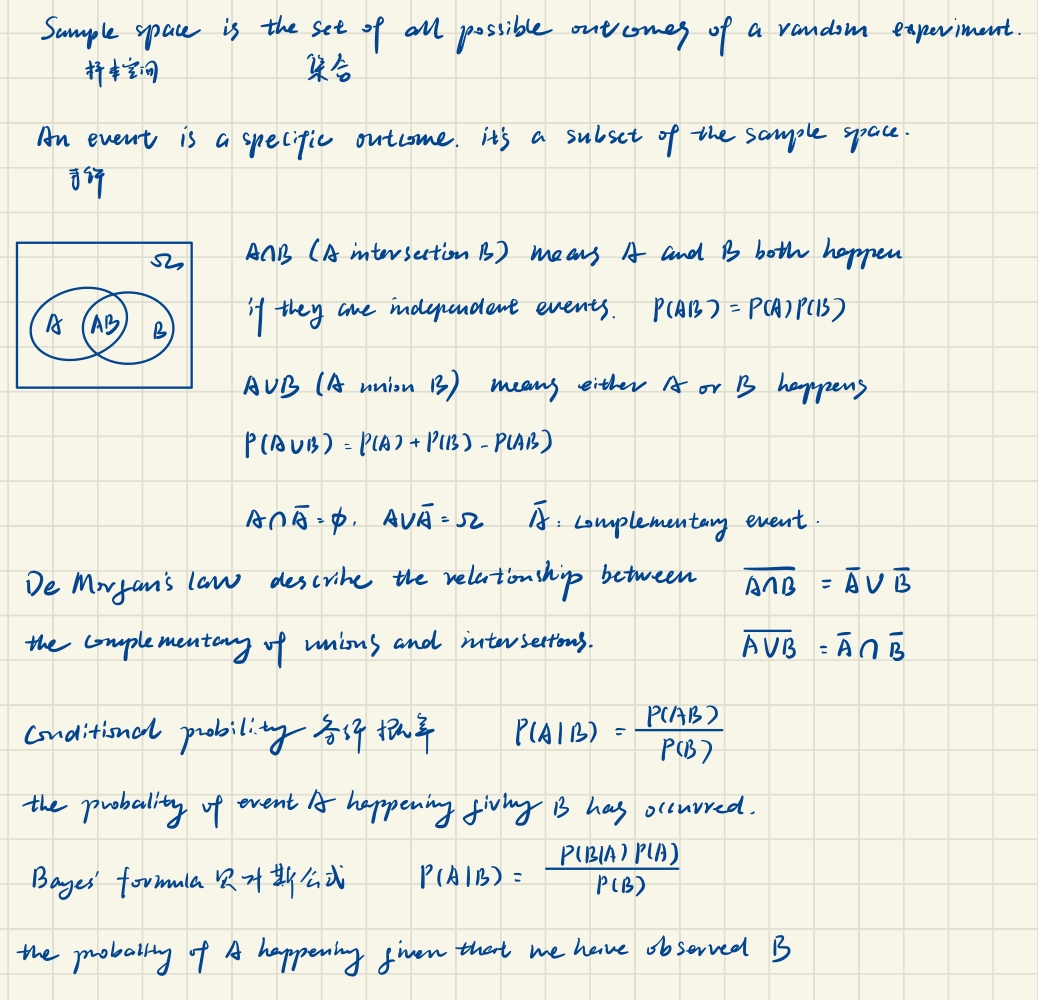 Sample space is the set of all possible outcomes of a random experiment.
样本空间 集合
An event is a specific outcome. it's a subset of the sample space.
事件
Ω
A AB B
A∩B (A intersection B) means A and B both happen
if they are independent events. P(AB) = P(A)P(B)
A∪B (A union B) means either A or B happens
P(A∪B) = P(A) + P(B) - P(AB)
A∩Ā = ϕ. A∪Ā = Ω Ā : complementary event.
De Morgan's law describe the relationship between A̅∩̅B̅ = Ā ∪ B̄
the complementary of unions and intersections. A̅∪̅B̅ = Ā ∩ B̄
Conditional probility 条件概率 P(A|B) = P(AB) / P(B)
the probality of event A happening giving B has occurred.
Bayes' formula 贝叶斯公式 P(A|B) = P(B|A) P(A) / P(B)
the probality of A happening given that we have observed B